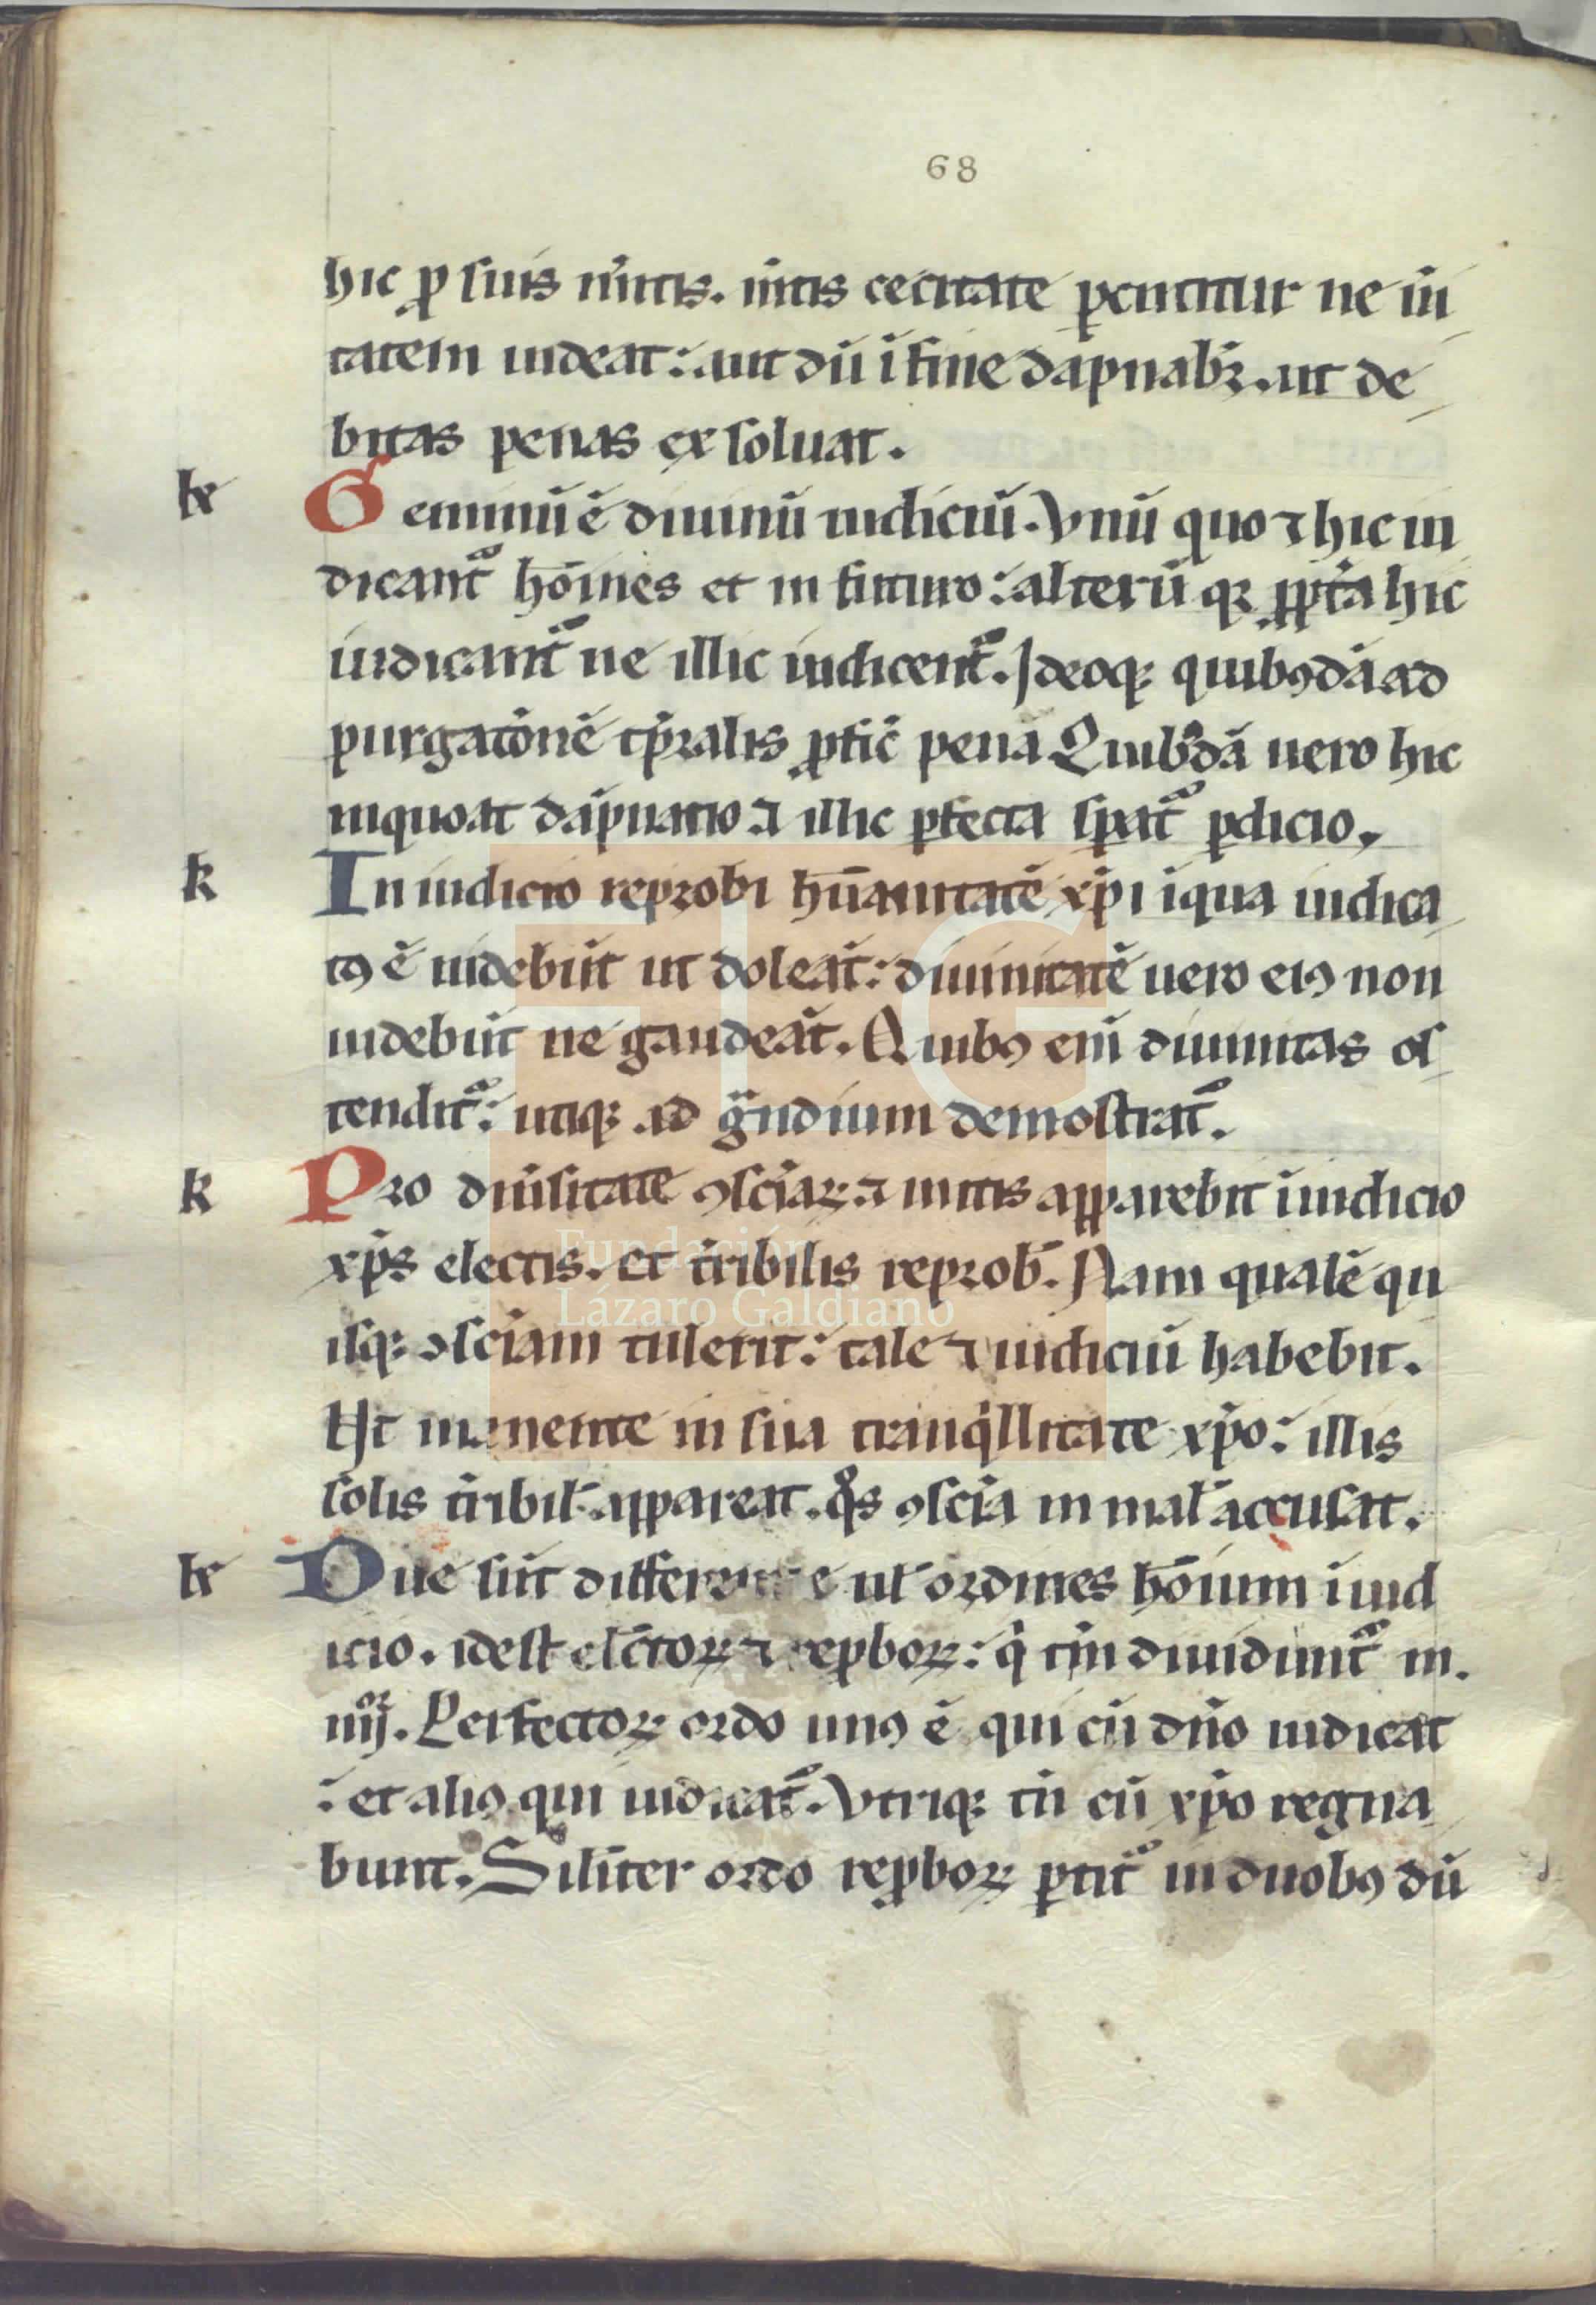 68
hic ꝓ suis m̃itis. m̃tis cecitate ꝑcutitur ne ũi
tatem uideat: aut dũ ĩ fine dãpnabr̃. ut de
bitas penas exsoluat.
k Geminũ ẽ diuinũ iudiciũ. Vnũ quo ⁊ hic iu
dicant᷑ hõmies et in futuro: alterũ qꝛ ꝓpt̃a hic
iudicant᷑ ne illic iudicent᷑. Ideoqꝫ quibꝰdã ad
purgatõnẽ tp̃ralis ꝓfic̃ pena Quibꝰdã uero hic
inquoat dãpnatio ⁊ illic ꝑfecta sꝑat᷑ ꝑdicio.
k In iudicio reprobi hũanitatẽ xp̃i ĩ qua iudica
tꝰ ẽ uidebũt ut doleãt: diuinitatẽ uero eiꝰ non
uidebũt ne gaudeãt. Quibꝰ enĩ diuinitas os
tendit᷑: utiqꝫ ad gaudium demostrat᷑.
k Pro diũsitate ꝯsciãꝝ ⁊ mitis apparebit ĩ iudicio
xp̃s electis. et t̃ribilis reprob̃. Nam qualẽ qu
isqꝫ ꝯsciam tulerit: tale ⁊ iudiciũ habebit.
Ut manente in sua tranqⁱllitate xp̃o: illis
solis t̃ribil̃ appareat. qͦs ꝯscĩa in mal̃ accusat.
k Due sũt differentie ul̃ ordines hõium ĩ iud
icio. idest elc̃toꝝ ⁊ reꝓboꝝ: qⁱ tm̃ diuidunt᷑ in.
iiijoꝛ. Perfectoꝝ ordo unꝰ ẽ qui cũ dño iudicat
: et aliꝰ qui iudicat᷑. Vtriqꝫ tñ cũ xp̃o regna
bunt. Silĩter ordo reꝓboꝝ ꝑtit᷑ in duobꝰ dũ
Fundación
Lázaro Galdiano